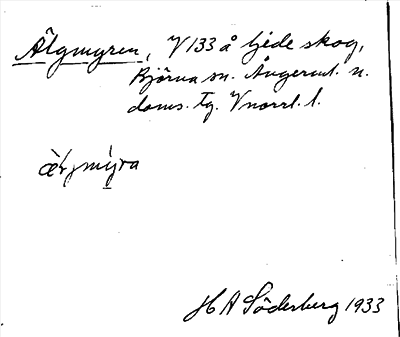 Älgmyren, V 133 å Gjéde skog,
Björna sn. Ångerml. n.
doms. tg. Vnorrl. l.
H A Söderberg 1933